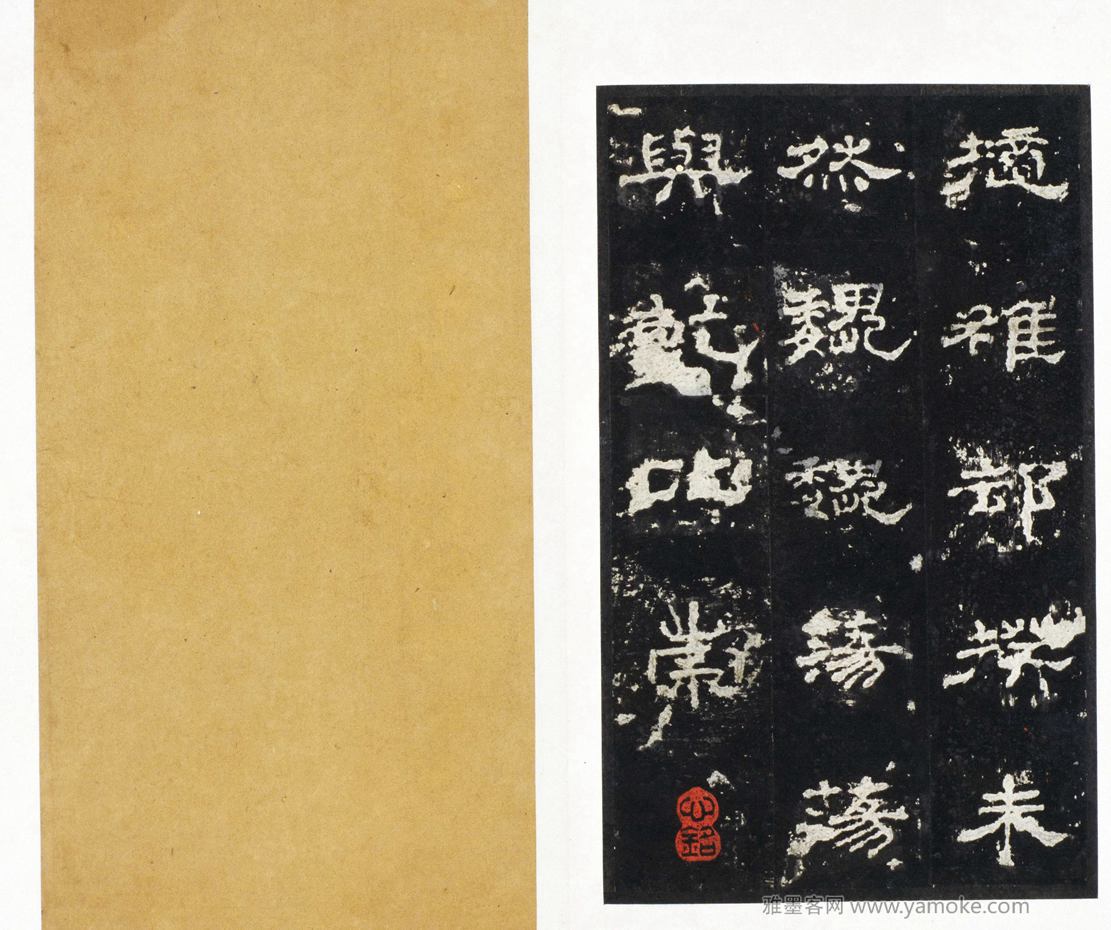 擿雒却揆未
然魏魏蕩蕩
與乾比崇
雅墨客网 www.yamoke.com